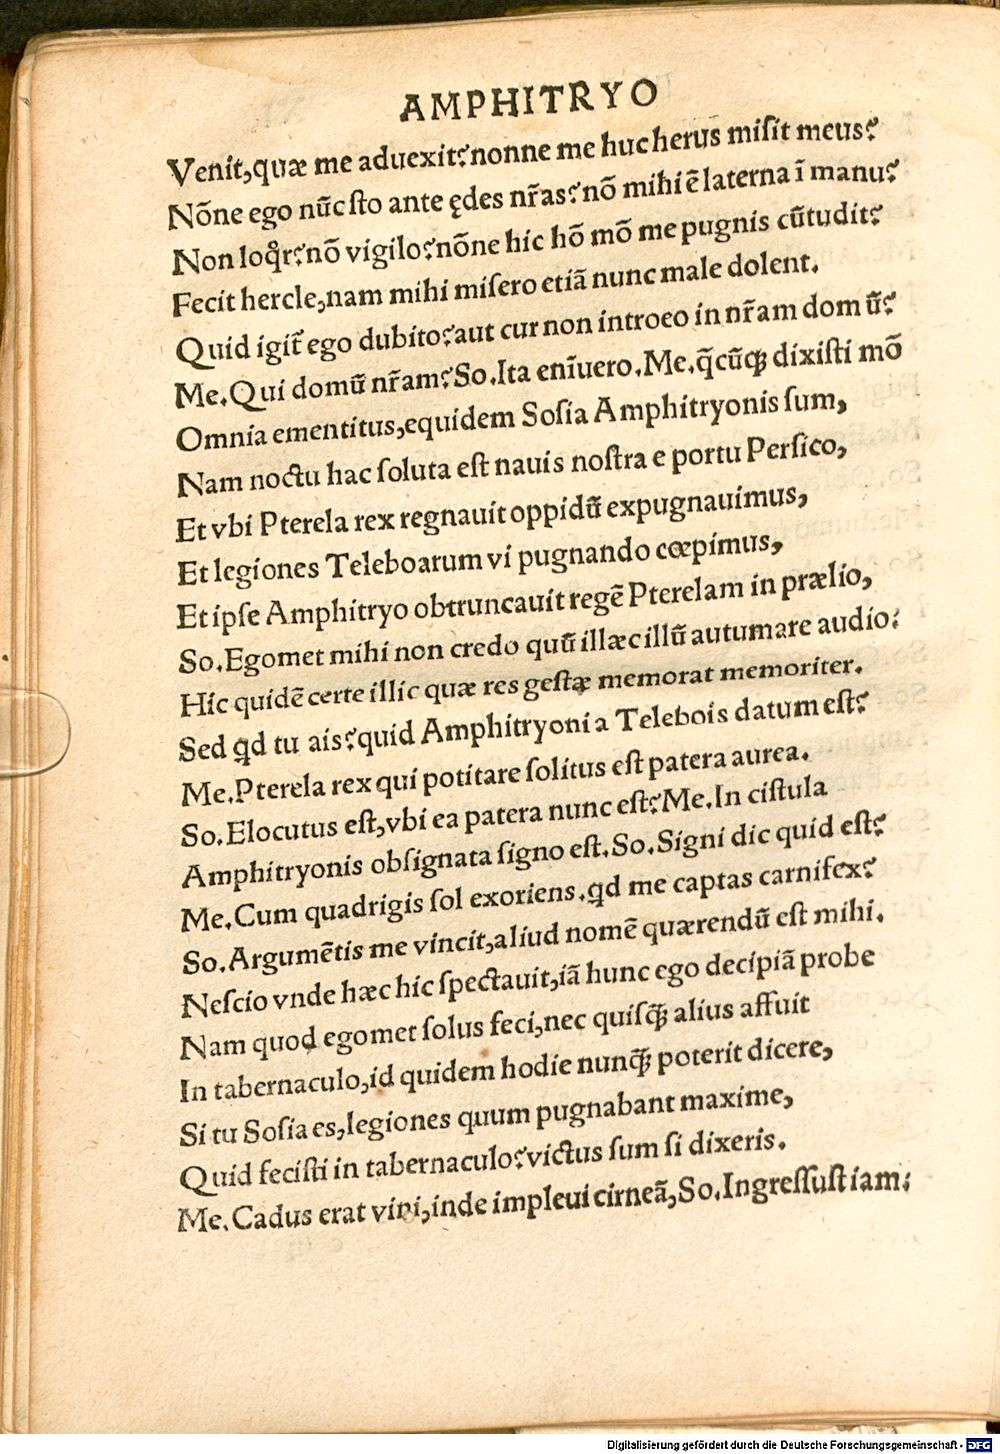 AMPHITRYO
Venit,quæ me aduexit?nonne me huc herus misit meus?
Nõne ego nũc sto ante ędes nr̃as?nõ mihi ẽ laterna ĩ manu?
Non loqͥr?nõ vigilo?nõne hic hõ mõ me pugnis cũtudit?
Fecit hercle,nam mihi misero etiã nunc male dolent.
Quid igit̃ ego dubito?aut cur non introeo in nr̃am domũ?
Me.Qui domũ nr̃am?So.Ita enĩuero.Me.q̃cũqꝫ dixisti mõ
Omnia ementitus,equidem Sosia Amphitryonis sum,
Nam noctu hac soluta est nauis nostra e portu Persico,
Et vbi Pterela rex regnauit oppidũ expugnauimus,
Et legiones Teleboarum vi pugnando cœpimus,
Et ipse Amphitryo obtruncauit regẽ Pterelam in prælio,
So.Egomet mihi non credo quũ illæc illũ autumare audio:
Hic quidẽ certe illic quæ res gestæ memorat memoriter.
Sed qd tu ais?quid Amphitryoni a Telebois datum est?
Me.Pterela rex qui potitare solitus est patera aurea.
So.Elocutus est,vbi ea patera nunc est?Me.In cistula
Amphitryonis obsignata signo est.So.Signi dic quid est?
Me.Cum quadrigis sol exoriens.qd me captas carnifex?
So.Argumẽtis me vincit,aliud nomẽ quærendũ est mihi.
Nescio vnde hæc hic spectauit,iã hunc ego decipiã probe
Nam quod egomet solus feci,nec quisqꝫ̃ alius affuit
In tabernaculo,id quidem hodie nunqꝫ̃ poterit dicere,
Si tu Sosia es,legiones quum pugnabant maxime,
Quid fecisti in tabernaculo?victus sum si dixeris.
Me.Cadus erat vini,inde impleui cirneã,So.Ingressust iam:
Digitalisierung gefördert durch die Deutsche Forschungsgemeinschaft - DFG